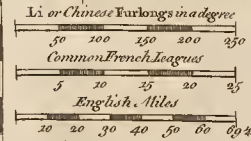 Li or Chinese Furlongs in a degree
50 100 150 200 250
Common French Leagues
5 10 15 20 25
English Miles
10 20 30 40 50 60 69½